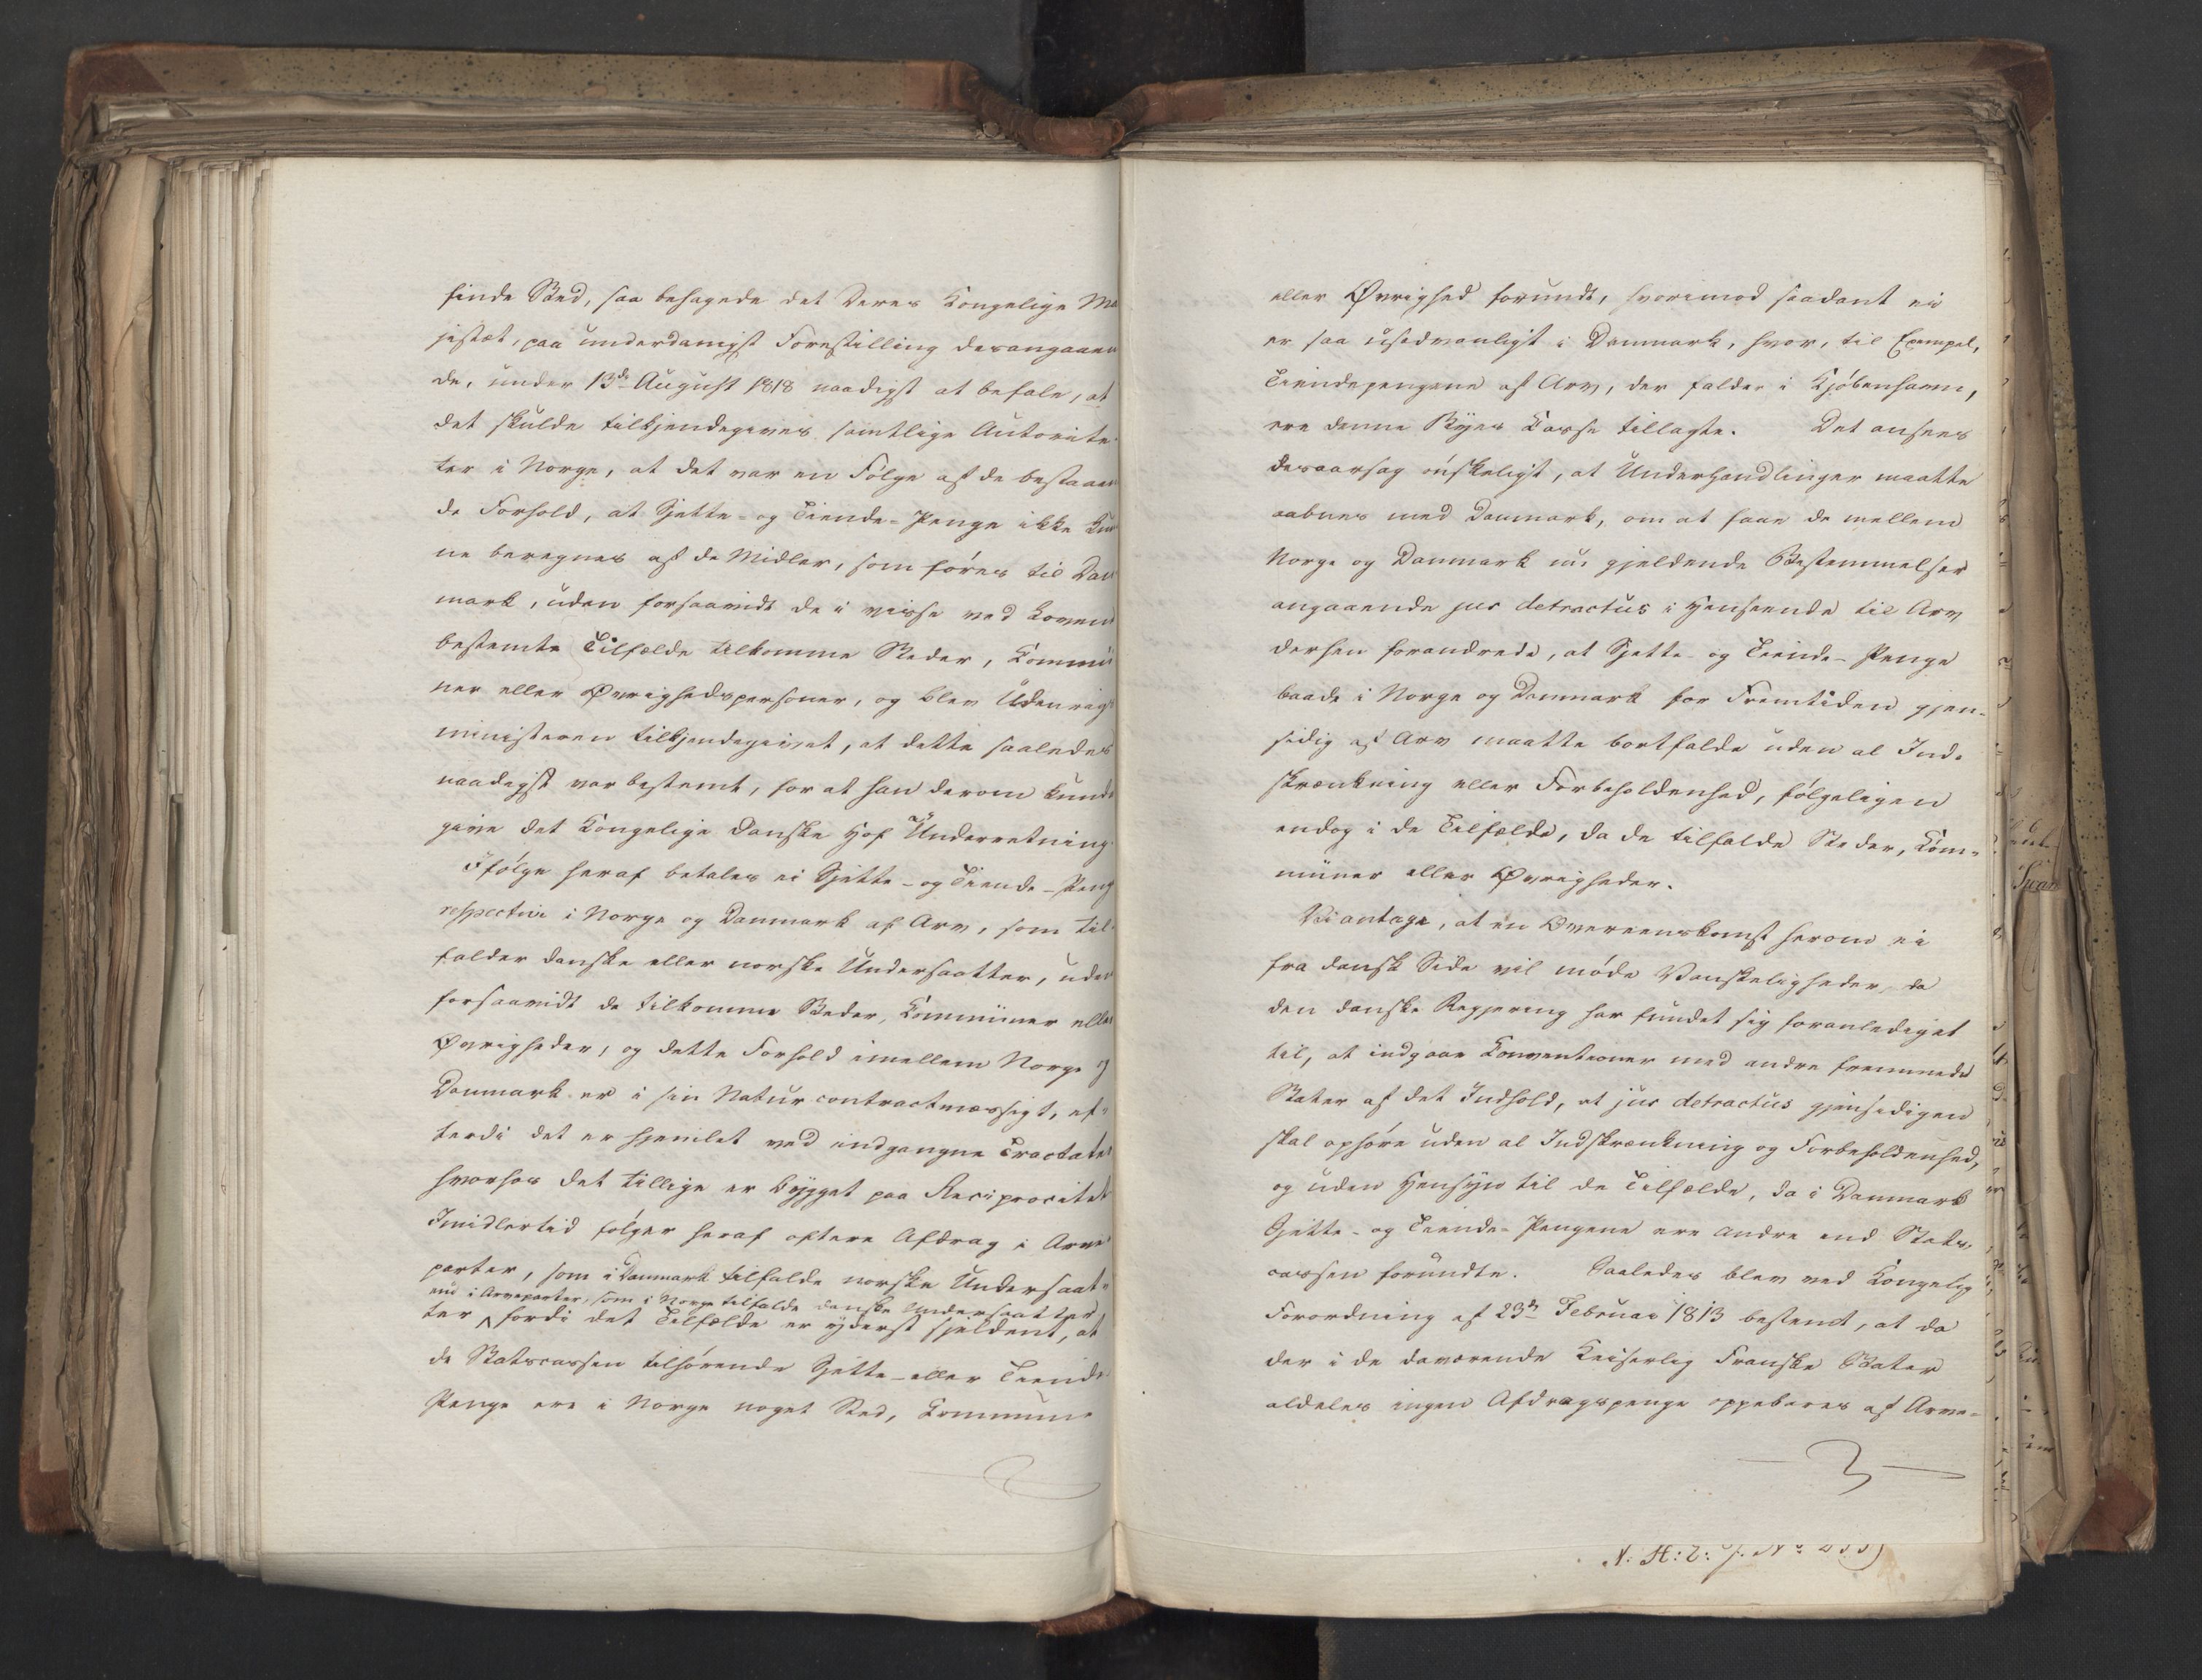 finde Sted, saa behagede det Deres Kongelige Ma
jestæt, paa underdanigst Forestilling desangaaen
de, under 13de August 1818 naadigst at befale, at
det skulde tilkjendegives samtlige Autorite-
ter i Norge, at det var en Følge af de bestaaen
de Forhold, at Sjette- og Tiende-Penge ikke kun
ne beregnes af de Midler, som føres til Dan
mark, uden forsaavidt de i visse ved Loven
bestemte Tilfælde tilkomme Steder, Commu
ner eller Øvrighedspersoner, og blev Udenrigs
ministeren tilkjendegivet, at dette saaledes
naadigst var bestemt, for at han derom kunde
give det Kongelige Danske Hof Underretning.
Ifølge heraf betales ei Sjette- og Tiende-Peng
respective i Norge og Danmark af Arv, som til-
falder danske eller norske Undersaatter, uden
forsaavidt de tilkomme Steder, Communer eller
Øvrigheder, og dette Forhold imellem Norge og
Danmark er i sin Natur contractmæssigt, ef-
terdi det er hjemlet ved indgangne Tractater
hvorhos det tillige er bygget paa Reciprocitet
Imidlertid følger heraf oftere Afdrag i Arve-
parter, som i Danmark tilfalde norske Undersaat-
end i Arveparter, som i Norge tilfalde danske Undersaatter,
ter, fordi det Tilfælde er yderst sjeldent, at
de Statscassen tilhørende Sjette- eller Tiende
Penge ere i Norge noget Sted, Commune
eller Øvrighed forundt, hvorimod saadant ei
er saa usædvanligt i Danmark, hvor, til Exempel,
Tiendepengene af Arv, der falder i Kjøbenhavn,
ere denne Byes Casse tillagte. Det ansees
desaarsag ønskeligt, at Underhandlinger maatte
aabnes med Danmark, om at faae de mellem
Norge og Danmark nu gjeldende Bestemmelser
angaaende jus detractus i Henseende til Arv
derhen forandrede, at Sjette- og Tiende-Penge
baade i Norge og Danmark for Fremtiden gjen-
sidig af Arv maatte bortfalde uden al Ind-
skrænkning eller Forbeholdenhed, følgeligen
endog i de Tilfælde, da de tilfalde Steder, Com-
muner eller Øvrigheder.
Vi antage, at en Overeenskomst herom ei
fra dansk Side vil møde Vanskeligheder, da
den danske Regjering har fundet sig foranlediget
til, at indgaae Conventioner med andre fremmede
Stater af det Indhold, at jus detractus gjensidigen
skal ophøre uden al Indskrænkning og Forbeholdenhed,
og uden Hensyn til de Tilfælde, da i Danmark
Sjette- og Tiende-Pengene ere andre end Stats-
cassen forundte. Saaledes blev ved Kongelig
Forordning af 23de Februar 1813 bestemt, at da
der i de daværende Keiserlig Franske Stater
aldeles ingen Afdragspenge oppebæres af Arve-